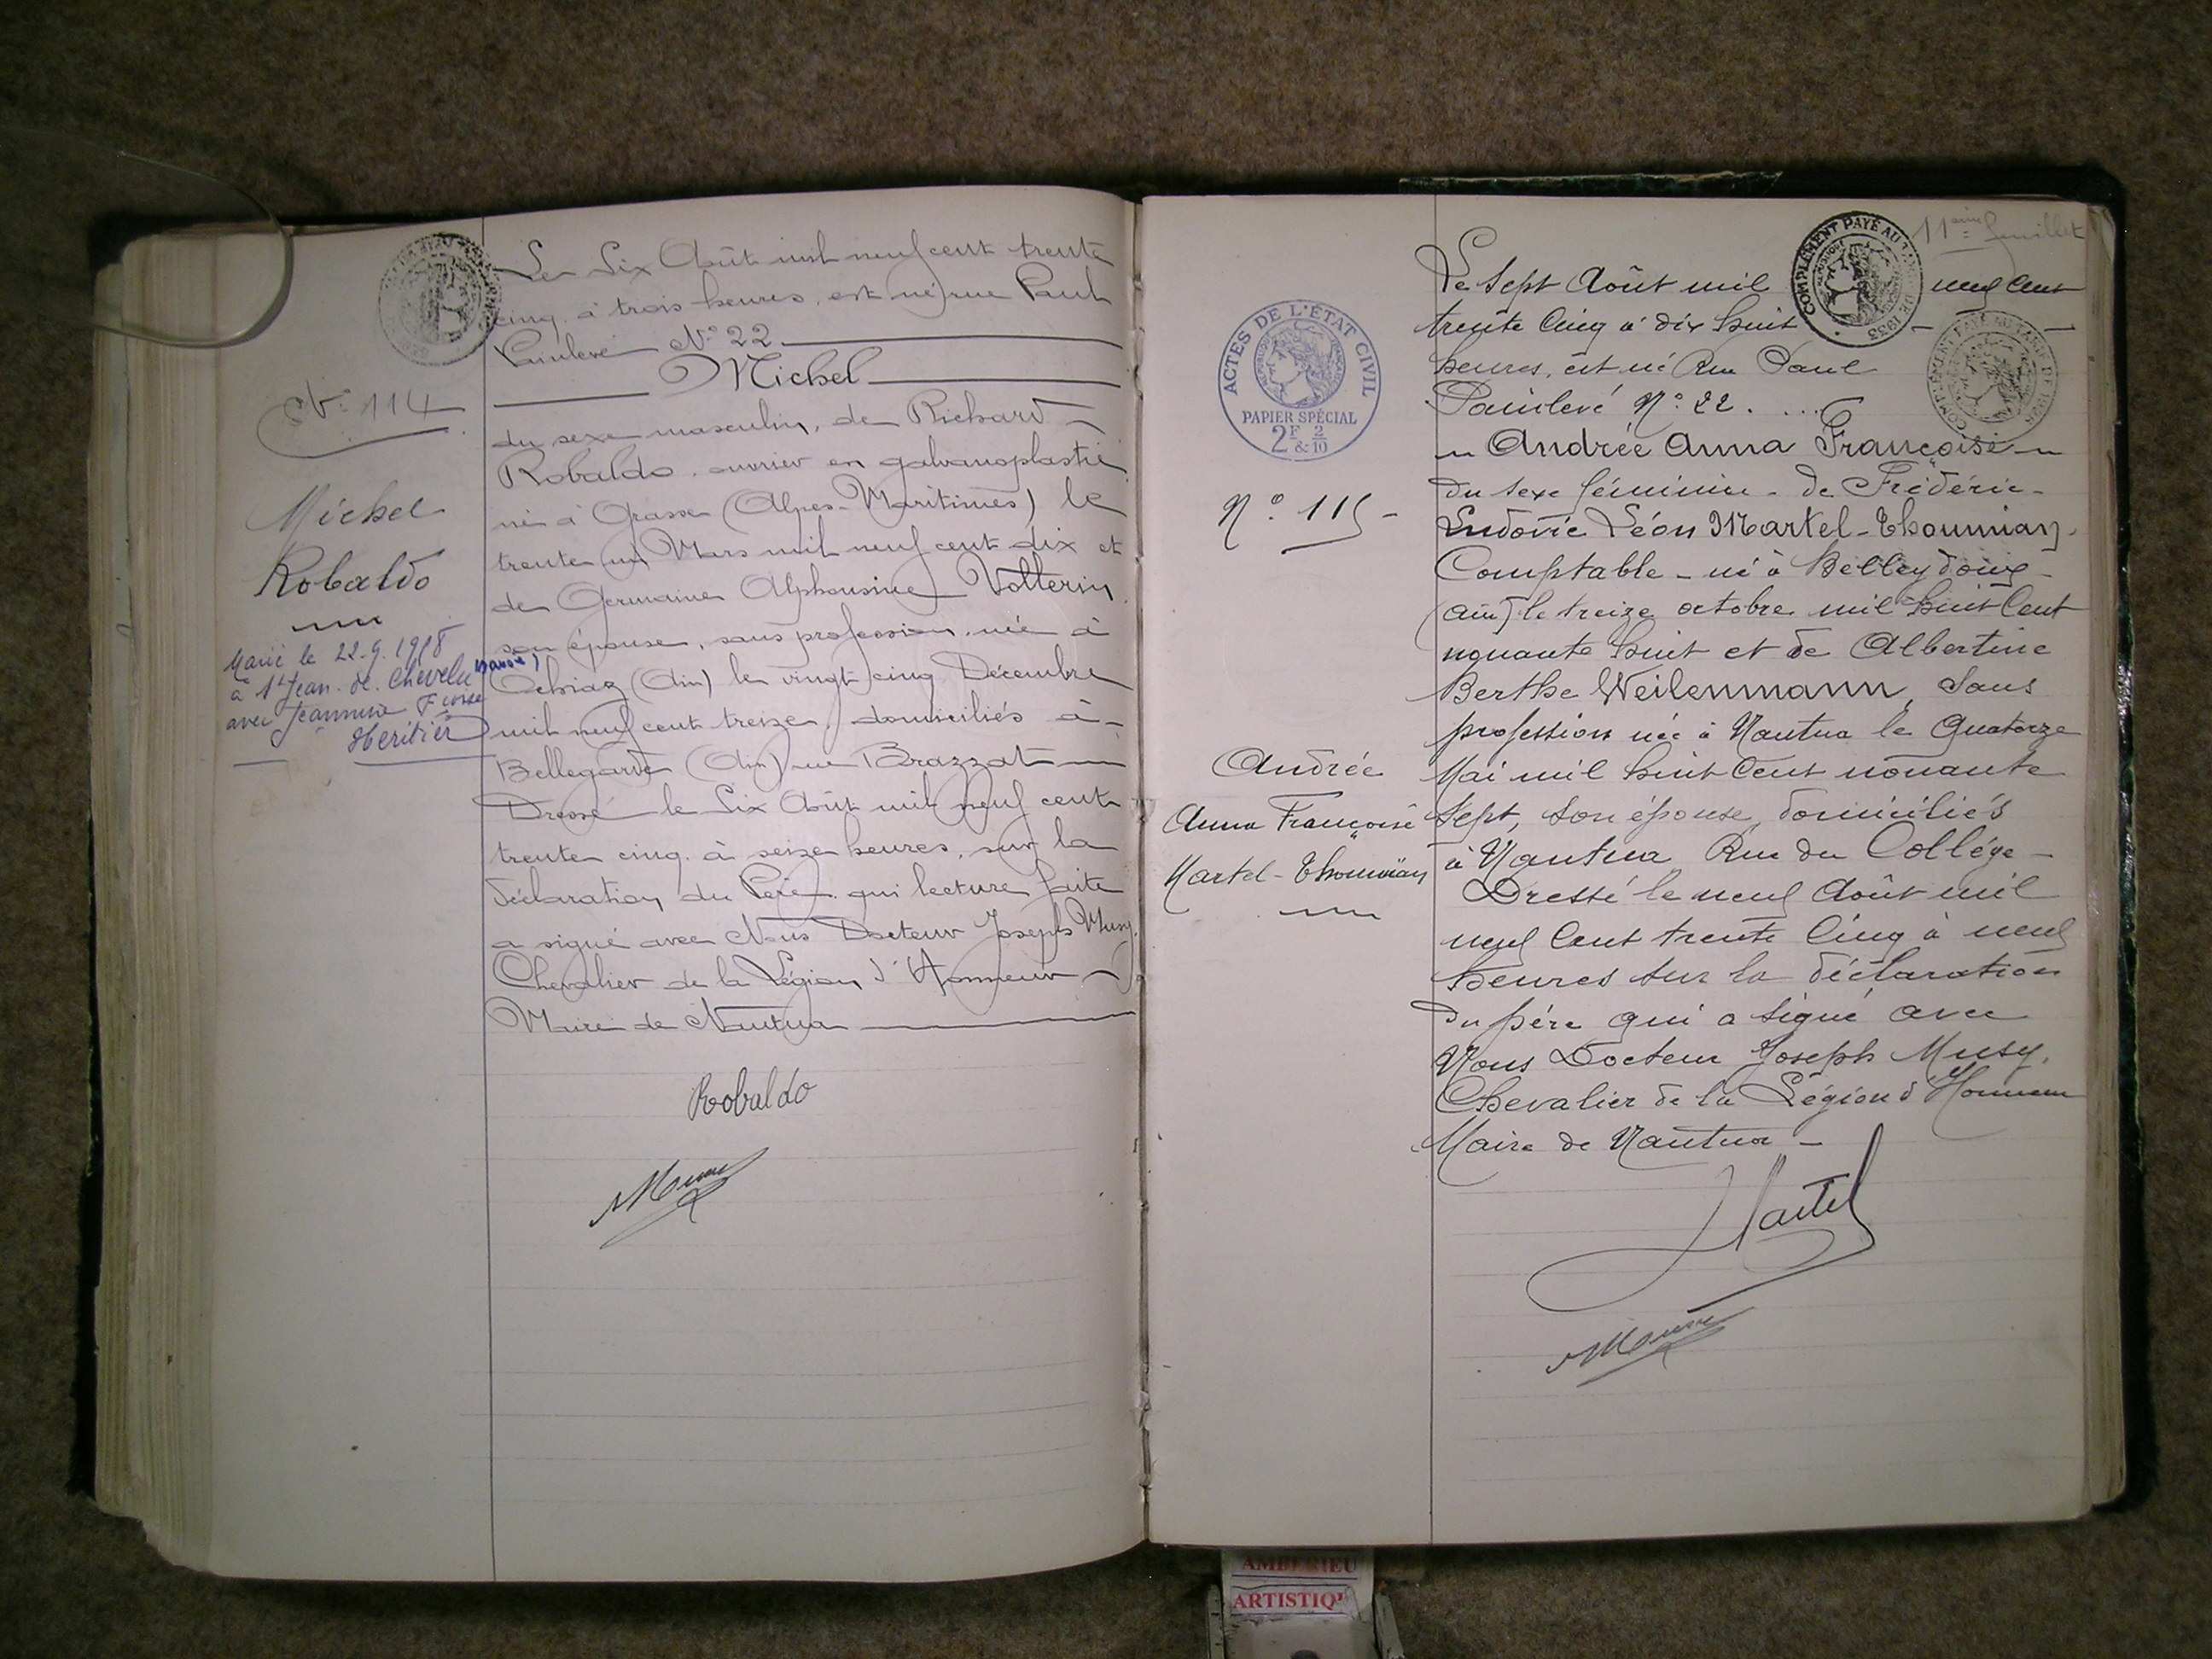 Le Six Août mil neuf cent trente
cinq, à trois heures, est né, rue Paul
Painlevé N° 22
Michel
du sexe masculin, de Richard
Robaldo, ouvrier en galvanoplastie
né à Grasse (Alpes-Maritimes) le
trente un Mars mil neuf cent dix et
de Germaine Alphonsine Volterin
son épouse, sans profession, née à
Ochiaz (Ain) le vingt cinq Décembre
mil neuf cent treize, domiciliés à
Bellegarde (Ain) rue Brazzat
Dressé le Six Août mil neuf cent
trente cinq, à seize heures, sur la
déclaration du Père, qui lecture faite
a signé avec Nous Docteur Joseph Musy,
Chevalier de la Légion d'Honneur
Maire de Nantua
Robaldo
N° 114
Michel
Robaldo
Marié le 22.9.1958
à St Jean de Chevelu
avec Jeannine
Héritier
11ème feuillet
COMPLÉMENT PAYÉ AU DE 1933
Le Sept Août mil neuf Cent
trente Cinq à dix huit
heures, est né Rue Paul
Painlevé N° 22. ...
Andrée Anna Françoise
du sexe féminin - de Frédéric-
Ludovic Léon Martel-Thoumian,
Comptable - né à Belleydoux
(Ain) le treize octobre mil huit Cent
nquante huit et de Albertine
Berthe Weilenmann, Sans
profession née à Nantua le Quatorze
Mai mil huit Cent nonante
Sept, Son épouse, domiciliés
à Nantua Rue du Collége -
Dressé le neuf Août mil
neuf Cent trente Cinq à neuf
heures sur la déclaration
du père qui a signé avec
Nous Docteur Joseph Musy,
Chevalier de la Légion d'Honneur
Maire de Nantua -
Martel
ACTES DE L'ÉTAT CIVIL
PAPIER SPÉCIAL
2F & 2/10
N° 115 -
Andrée
Anna Françoise
Martel-Thoumian
AMBERIEU
ARTISTIQ